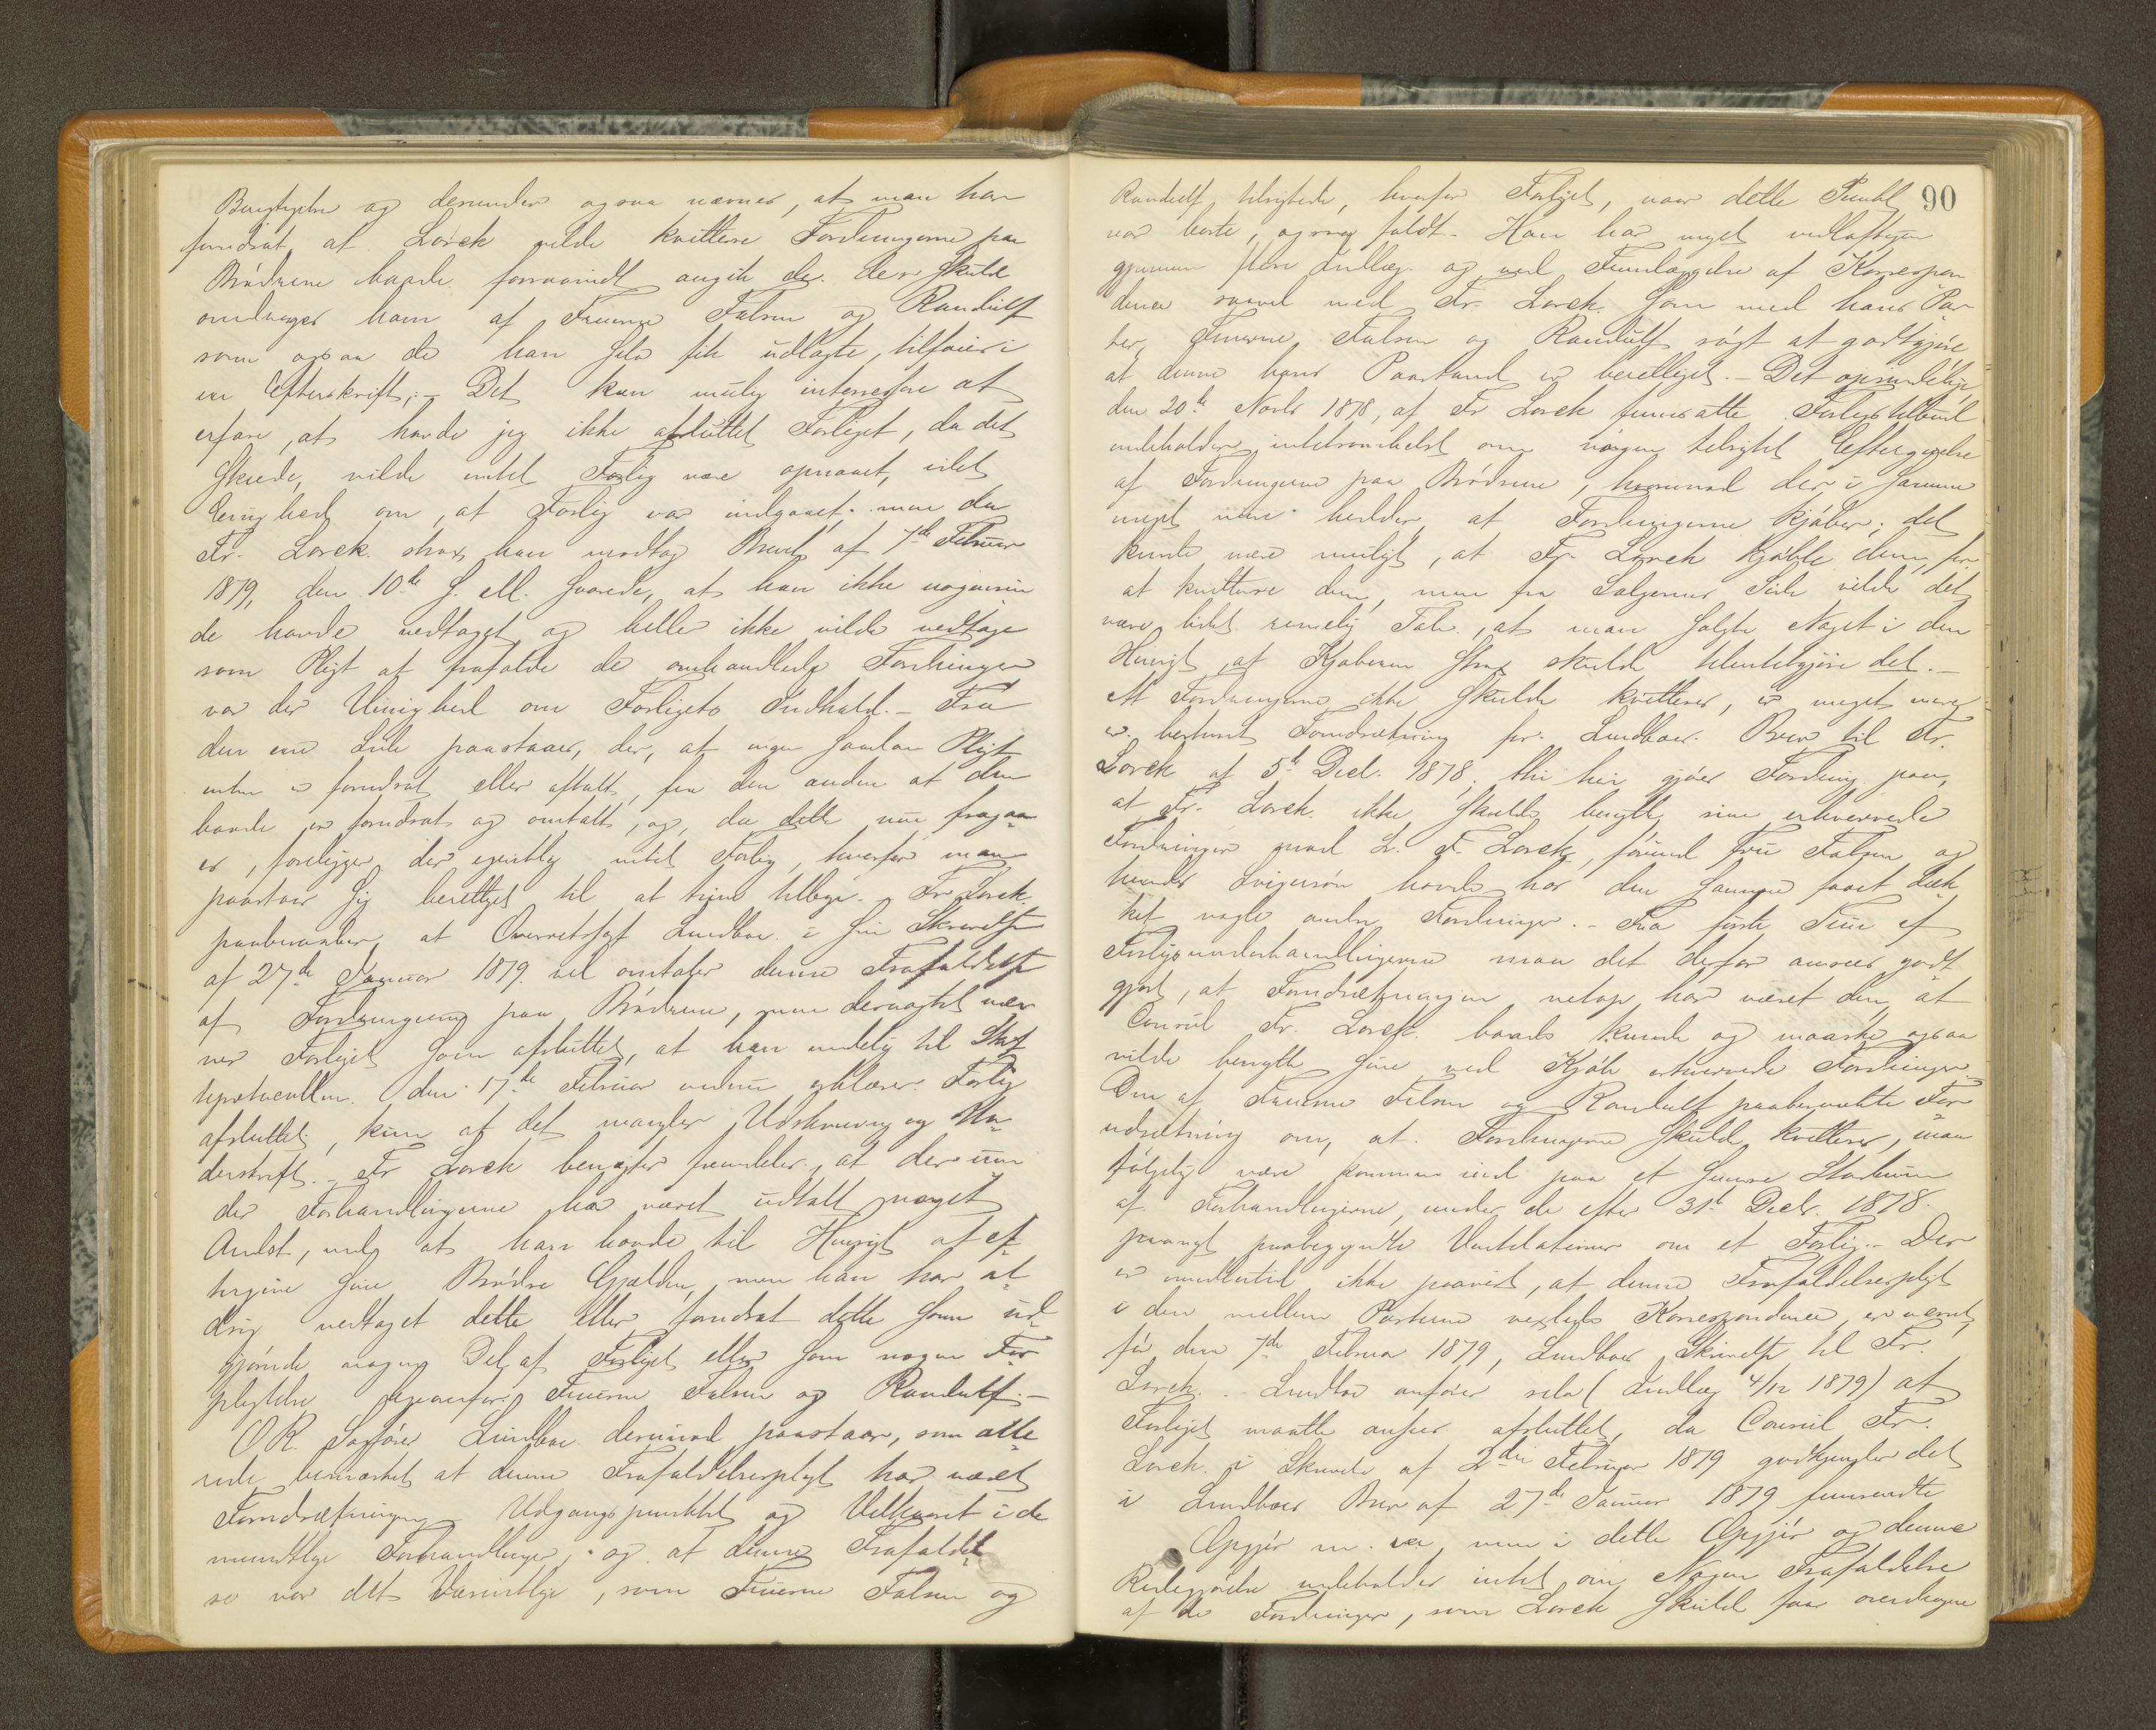 og derunder ogsaa nævner, at man har
fordret, at Lorck vilde kvittere Fordringerne paa
Brødrene baade forsaavidt angik de, der skulde
overdrages ham af Fruerne Falsen og Randulf
som ogsaa de han selv fik udlagte, tilføier i
en Efterskrift: Det kan mulig interessere at
erfare, at havde jeg ikke afsluttet Forliget, da det
skede, vilde intet Forlig være opnaaet, idet
Enighed om, at Forlig var indgaaet. men da
Fr. Lorck strax han modtog Brevet af 7de Februar
1879, den 10de s. M. svarede, at han ikke nogensin
de havde vedtaget og heller ikke vilde vedtage
som Pligt at frafalde de omhandlede Fordringer
var der Uenighed om Forligets Indhold. – Fra
den ene Side paastaaes der, at ingen saadan Pligt
enten er fordret eller aftalt, fra den anden at den
baade er fordret og omtalt, og, da dette nu fragaa-
es, foreligger der egentlig intet Forlig, hvorfor man
paastaar sig berettiget til at træde tilbage. – Fr. Lorck
paaberaaber at Overretssagf. Lundboe i sin Skrivelse
af 27de Januar 1879 vel omtaler denne Frafaldelse
af Fordringerne paa Brødrene, men desuagtet næv
ner Forliget som afsluttet, at han endelig til Skif
teprotocollen den 17de Februar erklærer: Forlig
afsluttet, kun at det mangler Udskrivning og Un-
derskrift. – Fr Lorck benægter fremdeles, at der un
der Forhandlingerne har været udtalt noget
Andet, end at han havde til Hensigt at ef-
tergive sine Brødre Gjælden, men han har al-
drig vedtaget dette eller fordret dette som ud-
gjørende nogen Del af Forliget eller som nogen For
pligtelse ligeoverfor Fruerne Falsen og Randulf. –
O.R. Sagfører Lundboe derimod paastaar, som alle-
rede bemærket at denne Frafaldelsespligt har været
Forudsætningen, Udgangspunktet og Vilkaaret i de
mundtlige Forhandlinger, og at denne Frafaldel-
se var det Væsentlige, som Fruerne Falsen og
90
Randulf tilsigtede, hvorfor Forliget, naar dette Punkt
var borte, ogsaa faldt. – Han har meget vidløftigen
gjennem flere Indlæg og ved Fremlæggelse af Korrespon
dence saavel med Fr. Lorck som med hans Par
ter, Fruerne Falsen og Randulf søgt at godtgjøre
at denne hans Paastand er berettiget. – Det oprindelige
den 20de Novbr 1878, af Fr Lorck fremsatte Forligstilbud
indeholder intetsomhelst om nogen tilsigtet Eftergivelse
af Fordringerne paa Brødrene, hvorimod der i samme
meget mere heder at Fordringerne kjøbes; det
kunde være muligt, at Fr. Lorck kjøbte dem, for
at kvittere dem, men fra Sælgernes Side vilde det
være lidet rimelig Tale, at man solgte Noget i den
Hensigt, at Kjøberen strax skulde tilintetgjøre det. –
At Fordringerne ikke skulde kvitteres, er meget mere
en bestemt Forudsætning for Lundboes Brev til Fr.
Lorck af 5te Decbr. 1878, thi her gjøres Fordring paa,
at Fr. Lorck ikke skulde benytte sine erhvervede
Fordringer mod L. F. Lorck, førend Fru Falsen og
hendes Svigersøn havde hos den samme faaet Dæk
ket nogle andre Fordringer. – Fra første Tiden af
Forligsunderhandlingerne maa det derfor ansees godt
gjort, at Forudsætningen netop har været den, at
Consul Fr. Lorck baade kunde og maaske ogsaa
vilde benytte sine ved Kjøb erhvervede Fordringer.
Den af Fruerne Falsen og Randulf paaberaabte For
udsætning om, at Fordringerne skulde kvitteres, maa
følgelig være kommen ind paa et senere Stadium
af Forhandlingerne, under de efter 31te Decbr. 1878
paanyt paabegyndte Ventilationer om et Forlig. – Der
er imidlertid ikke paavist, at denne Frafaldelsespligt
i den mellem Parterne vexlede Korrespondence er nævnt
før den 7de Februar 1879, Lundboes Skrivelse til Fr.
Lorck. – Lundboe anfører selv (Indlæg 4/12 1879) at
Forliget maatte ansees afsluttet, da Consul Fr.
Lorck i Skrivelse af 2den Februar 1879 godkjendte det
i Lundboes Brev af 27de Januar 1879 fremsendte
Opgjør m. v., men i dette Opgjør og denne
Redegjørelse indeholdes intet om Nogen Frafaldelse
af de Fordringer, som Lorck skulde faae overdragne